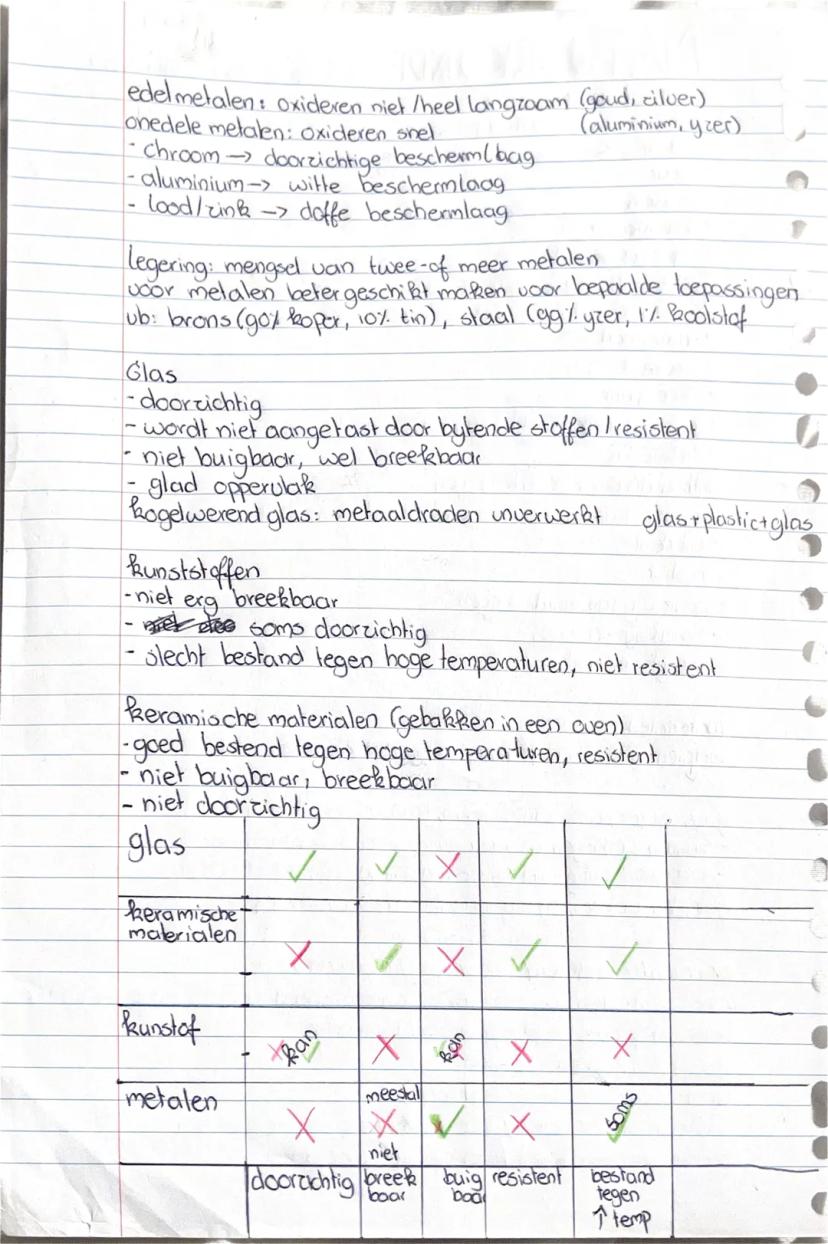 edelmetalen: oxideren niet/heel langzaam (goud, zilver)
onedele metalen: oxideren snel (aluminium, yzer)
- chroom → doorzichtige beschermlaag
- aluminium → witte beschermlaag
- lood/zink → doffe beschermlaag
legering: mengsel van twee-of meer metalen
voor metalen beter geschikt maken voor bepaalde toepassingen
vb: brons (90% koper, 10% tin), staal (99% yzer, 1% koolstof
Glas
- doorzichtig
- wordt niet aangetast door bytende stoffen/resistent
- niet buigbaar, wel breekbaar
- glad oppervlak
kogelwerend glas: metaaldraden inverwerkt glas+plastic+glas
kunststoffen
- niet erg breekbaar
- soms doorzichtig
- slecht bestand tegen hoge temperaturen, niet resistent
keramische materialen (gebakken in een oven)
- goed bestend tegen hoge temperaturen, resistent
- niet buigbaar, breekbaar
- niet doorzichtig
glas ✓ ✓ ✗ ✓ ✓
keramische
materialen ✗ ✓ ✗ ✓ ✓
kunstof kan ✗ kan ✗ ✗
metalen ✗ meestal ✗ niet ✓ ✗ soms
doorzichtig breek buig resistent bestand
baar baar tegen
↑ temp